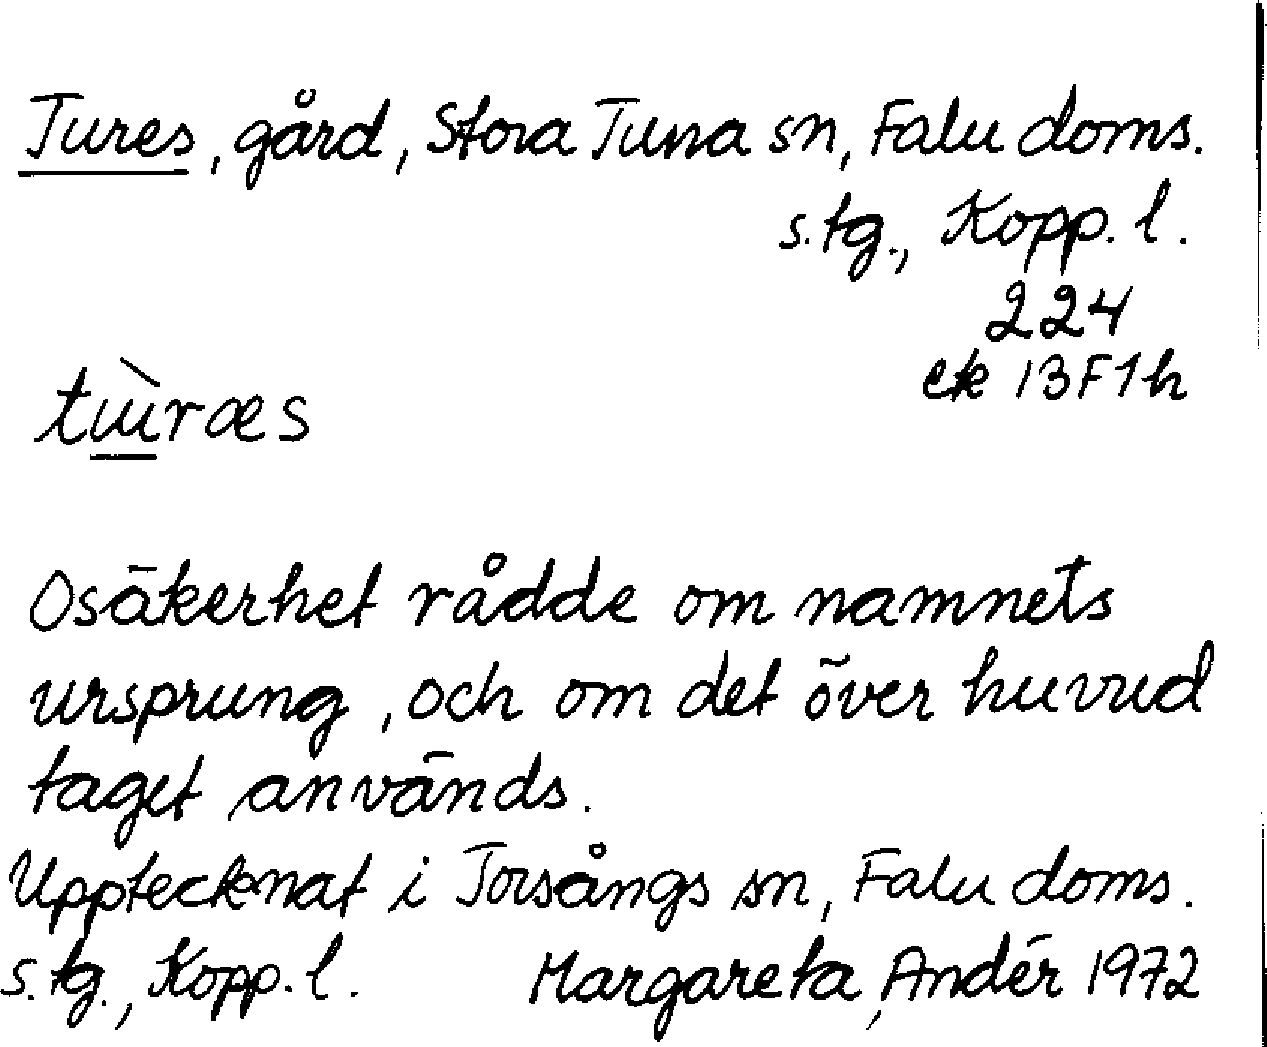 Tures, gård, Stora Tuna sn, Falu doms.
s.tg., Kopp. l.
224
ek 13F1h
tɯ̀ræs
Osäkerhet rådde om namnets
ursprung, och om det över huvud
taget används.
Upptecknat i Torsångs sn, Falu doms.
s.tg., Kopp. l. Margareta Andér 1972